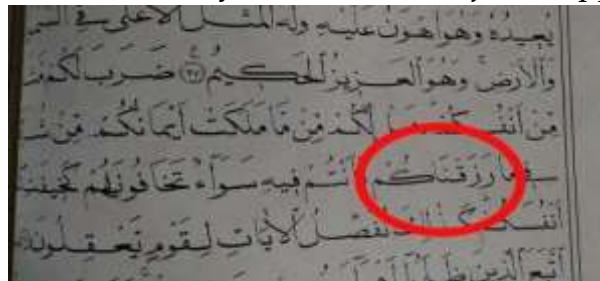 يُعِيدُهُ وَهُوَ أَهْوَنُ عَلَيْهِ وَلَهُ الْمَثَلُ الْأَعْلَى فِي
وَالْأَرْضِ وَهُوَ الْعَزِيزُ الْحَكِيمُ ضَرَبَ لَكُمْ
مِنْ أَنْفُسِكُمْ لَكُمْ مِنْ مَا مَلَكَتْ أَيْمَانُكُمْ مِنْ
رَزَقْنَاكُمْ فَأَنْتُمْ فِيهِ سَوَاءٌ تَخَافُونَهُمْ
نُفَصِّلُ الْآيَاتِ لِقَوْمٍ يَعْقِلُونَ
اتَّبَعَ الَّذِينَ